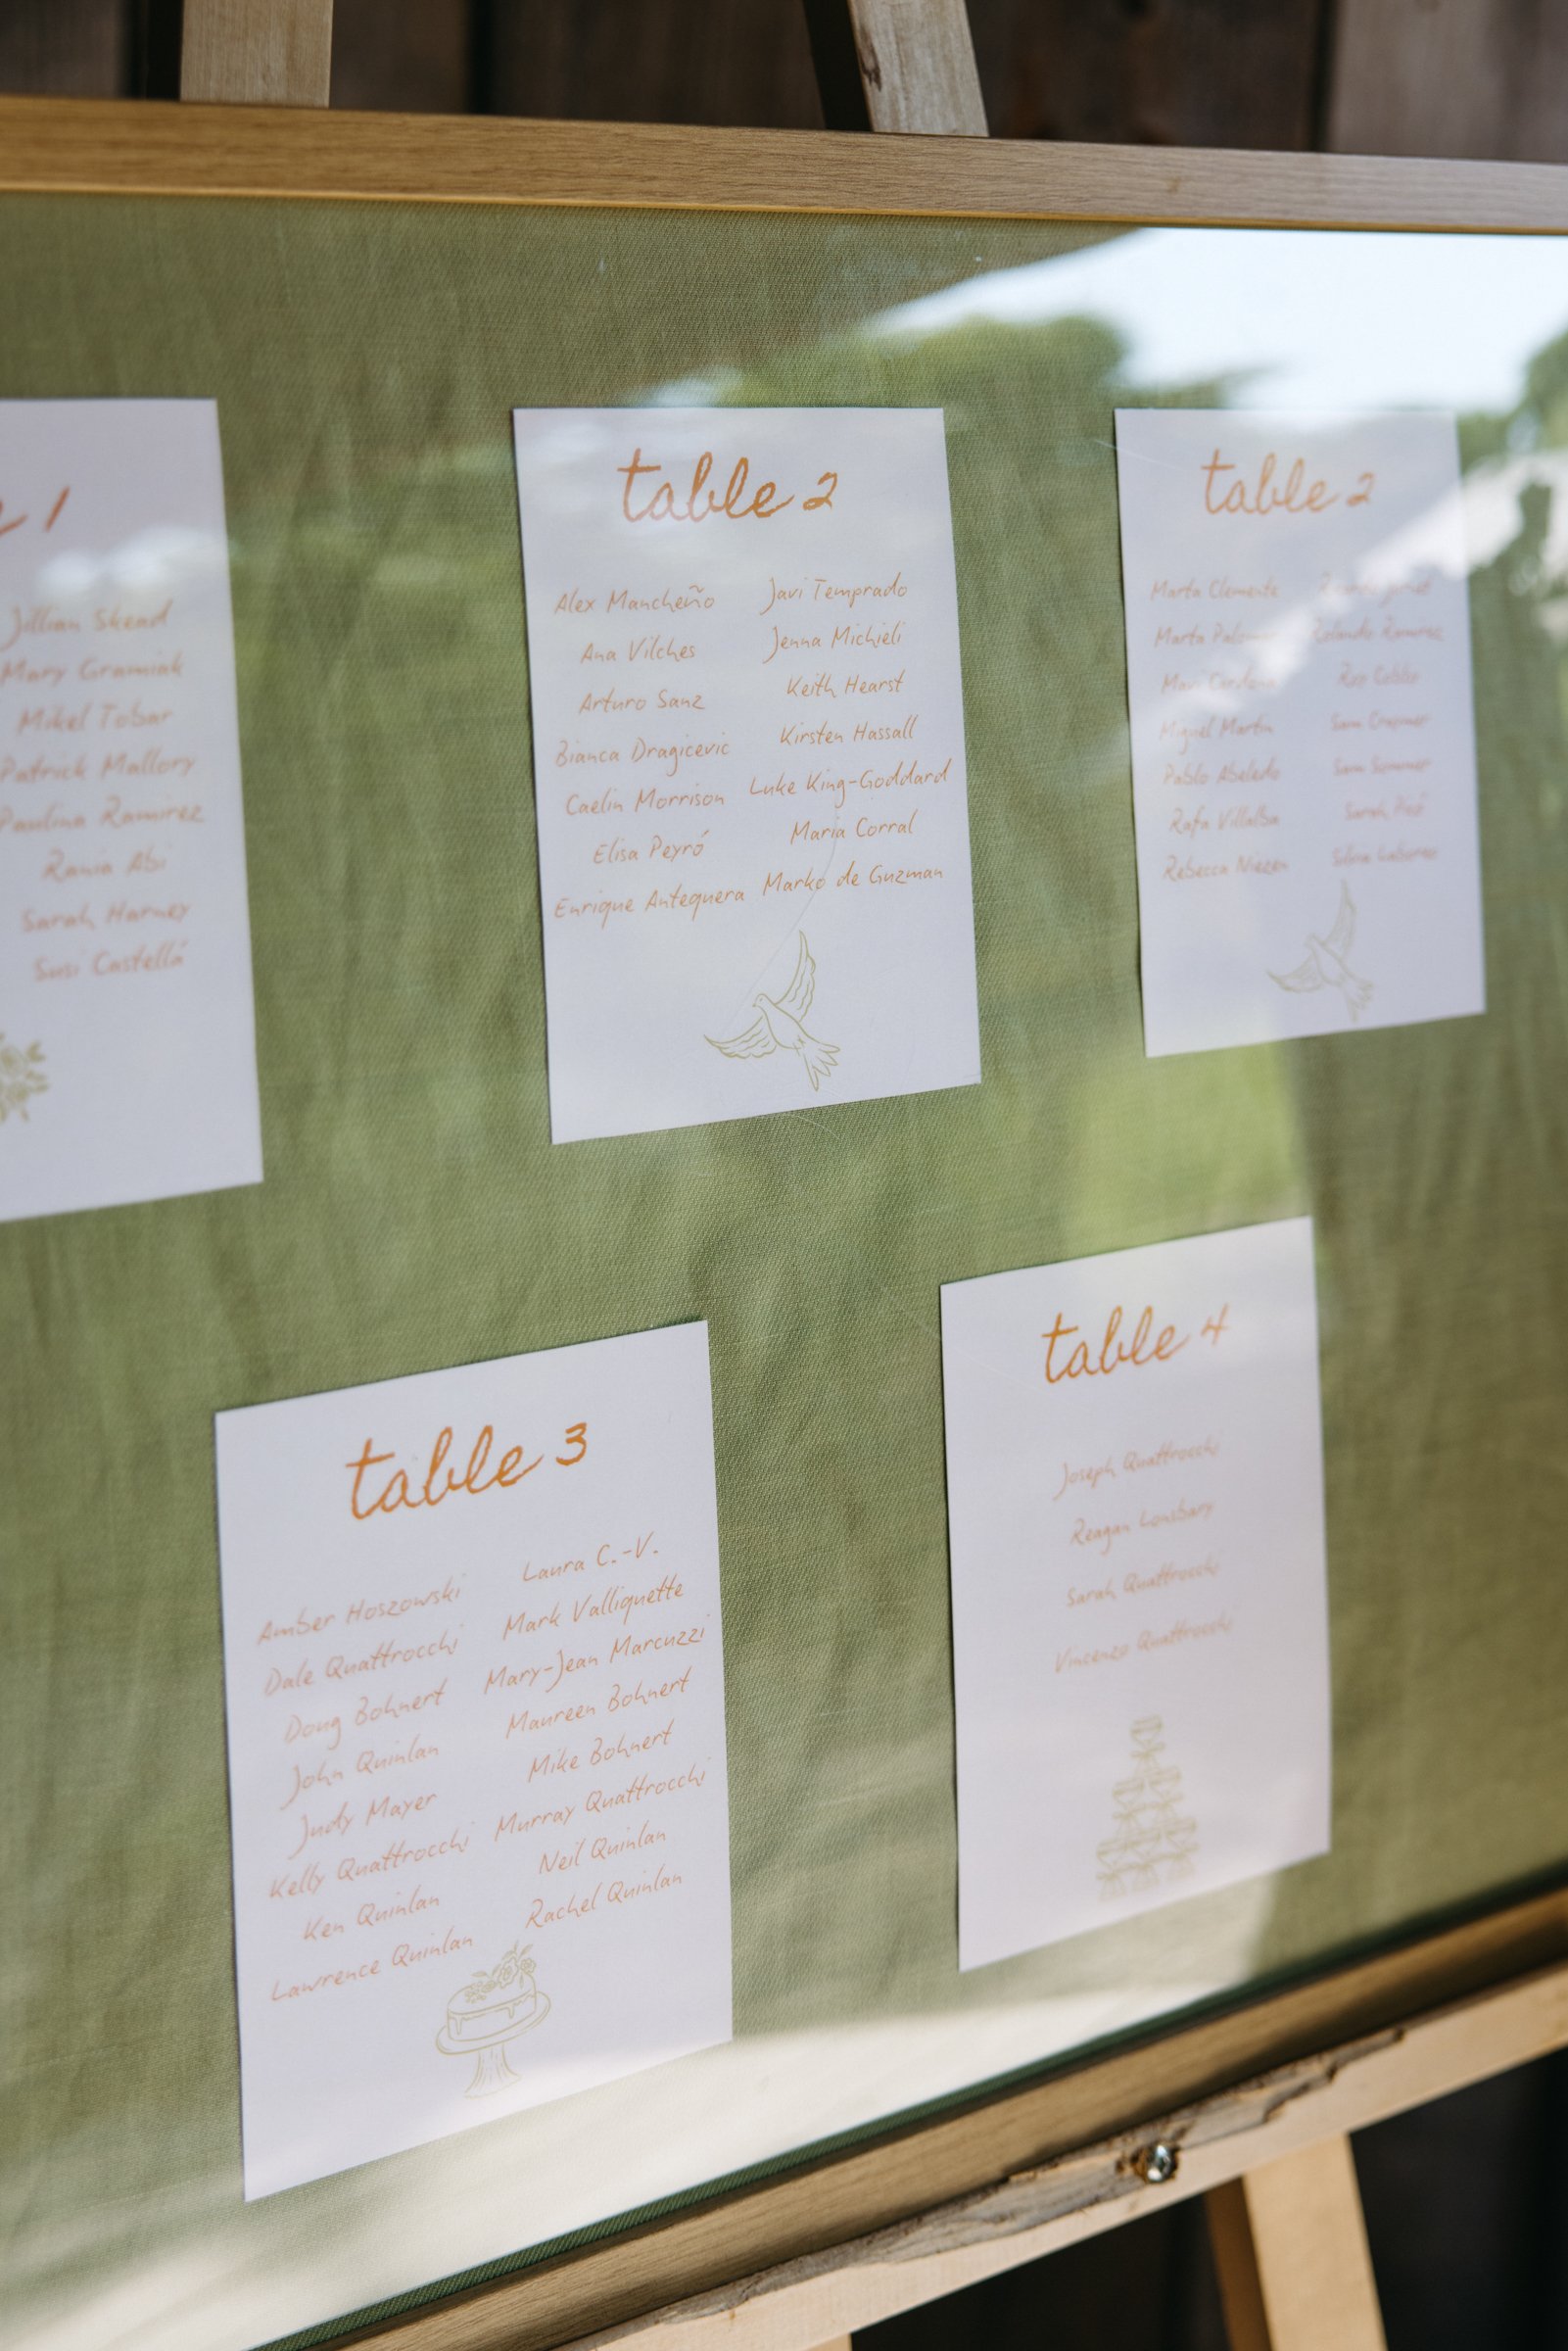 1
Jillian Skead
Mary Gramiak
Mikel Tobar
Patrick Mallory
Paulina Ramirez
Rania Abi
Sarah Harney
Susi Castellá
table 2
Alex Mancheño Javi Temprado
Ana Vilches Jenna Michieli
Arturo Sanz Keith Hearst
Bianca Dragicevic Kirsten Hassall
Caelin Morrison Luke King-Goddard
Elisa Peyró Maria Corral
Enrique Antequera Marko de Guzman
table 2
Marta Clemente
Marta Rolando Ramirez
Miguel Martin Sam
Pablo Abeledo Sam
Rafa Villalba Sarah
Rebecca Niezen Silvia
table 3
Amber Hoszowski Laura C.-V.
Dale Quattrocchi Mark Valliquette
Doug Bohnert Mary-Jean Marcuzzi
John Quinlan Maureen Bohnert
Judy Mayer Mike Bohnert
Kelly Quattrocchi Murray Quattrocchi
Ken Quinlan Neil Quinlan
Lawrence Quinlan Rachel Quinlan
table 4
Joseph Quattrocchi
Reagan Lonsbary
Sarah Quattrocchi
Vincenzo Quattrocchi